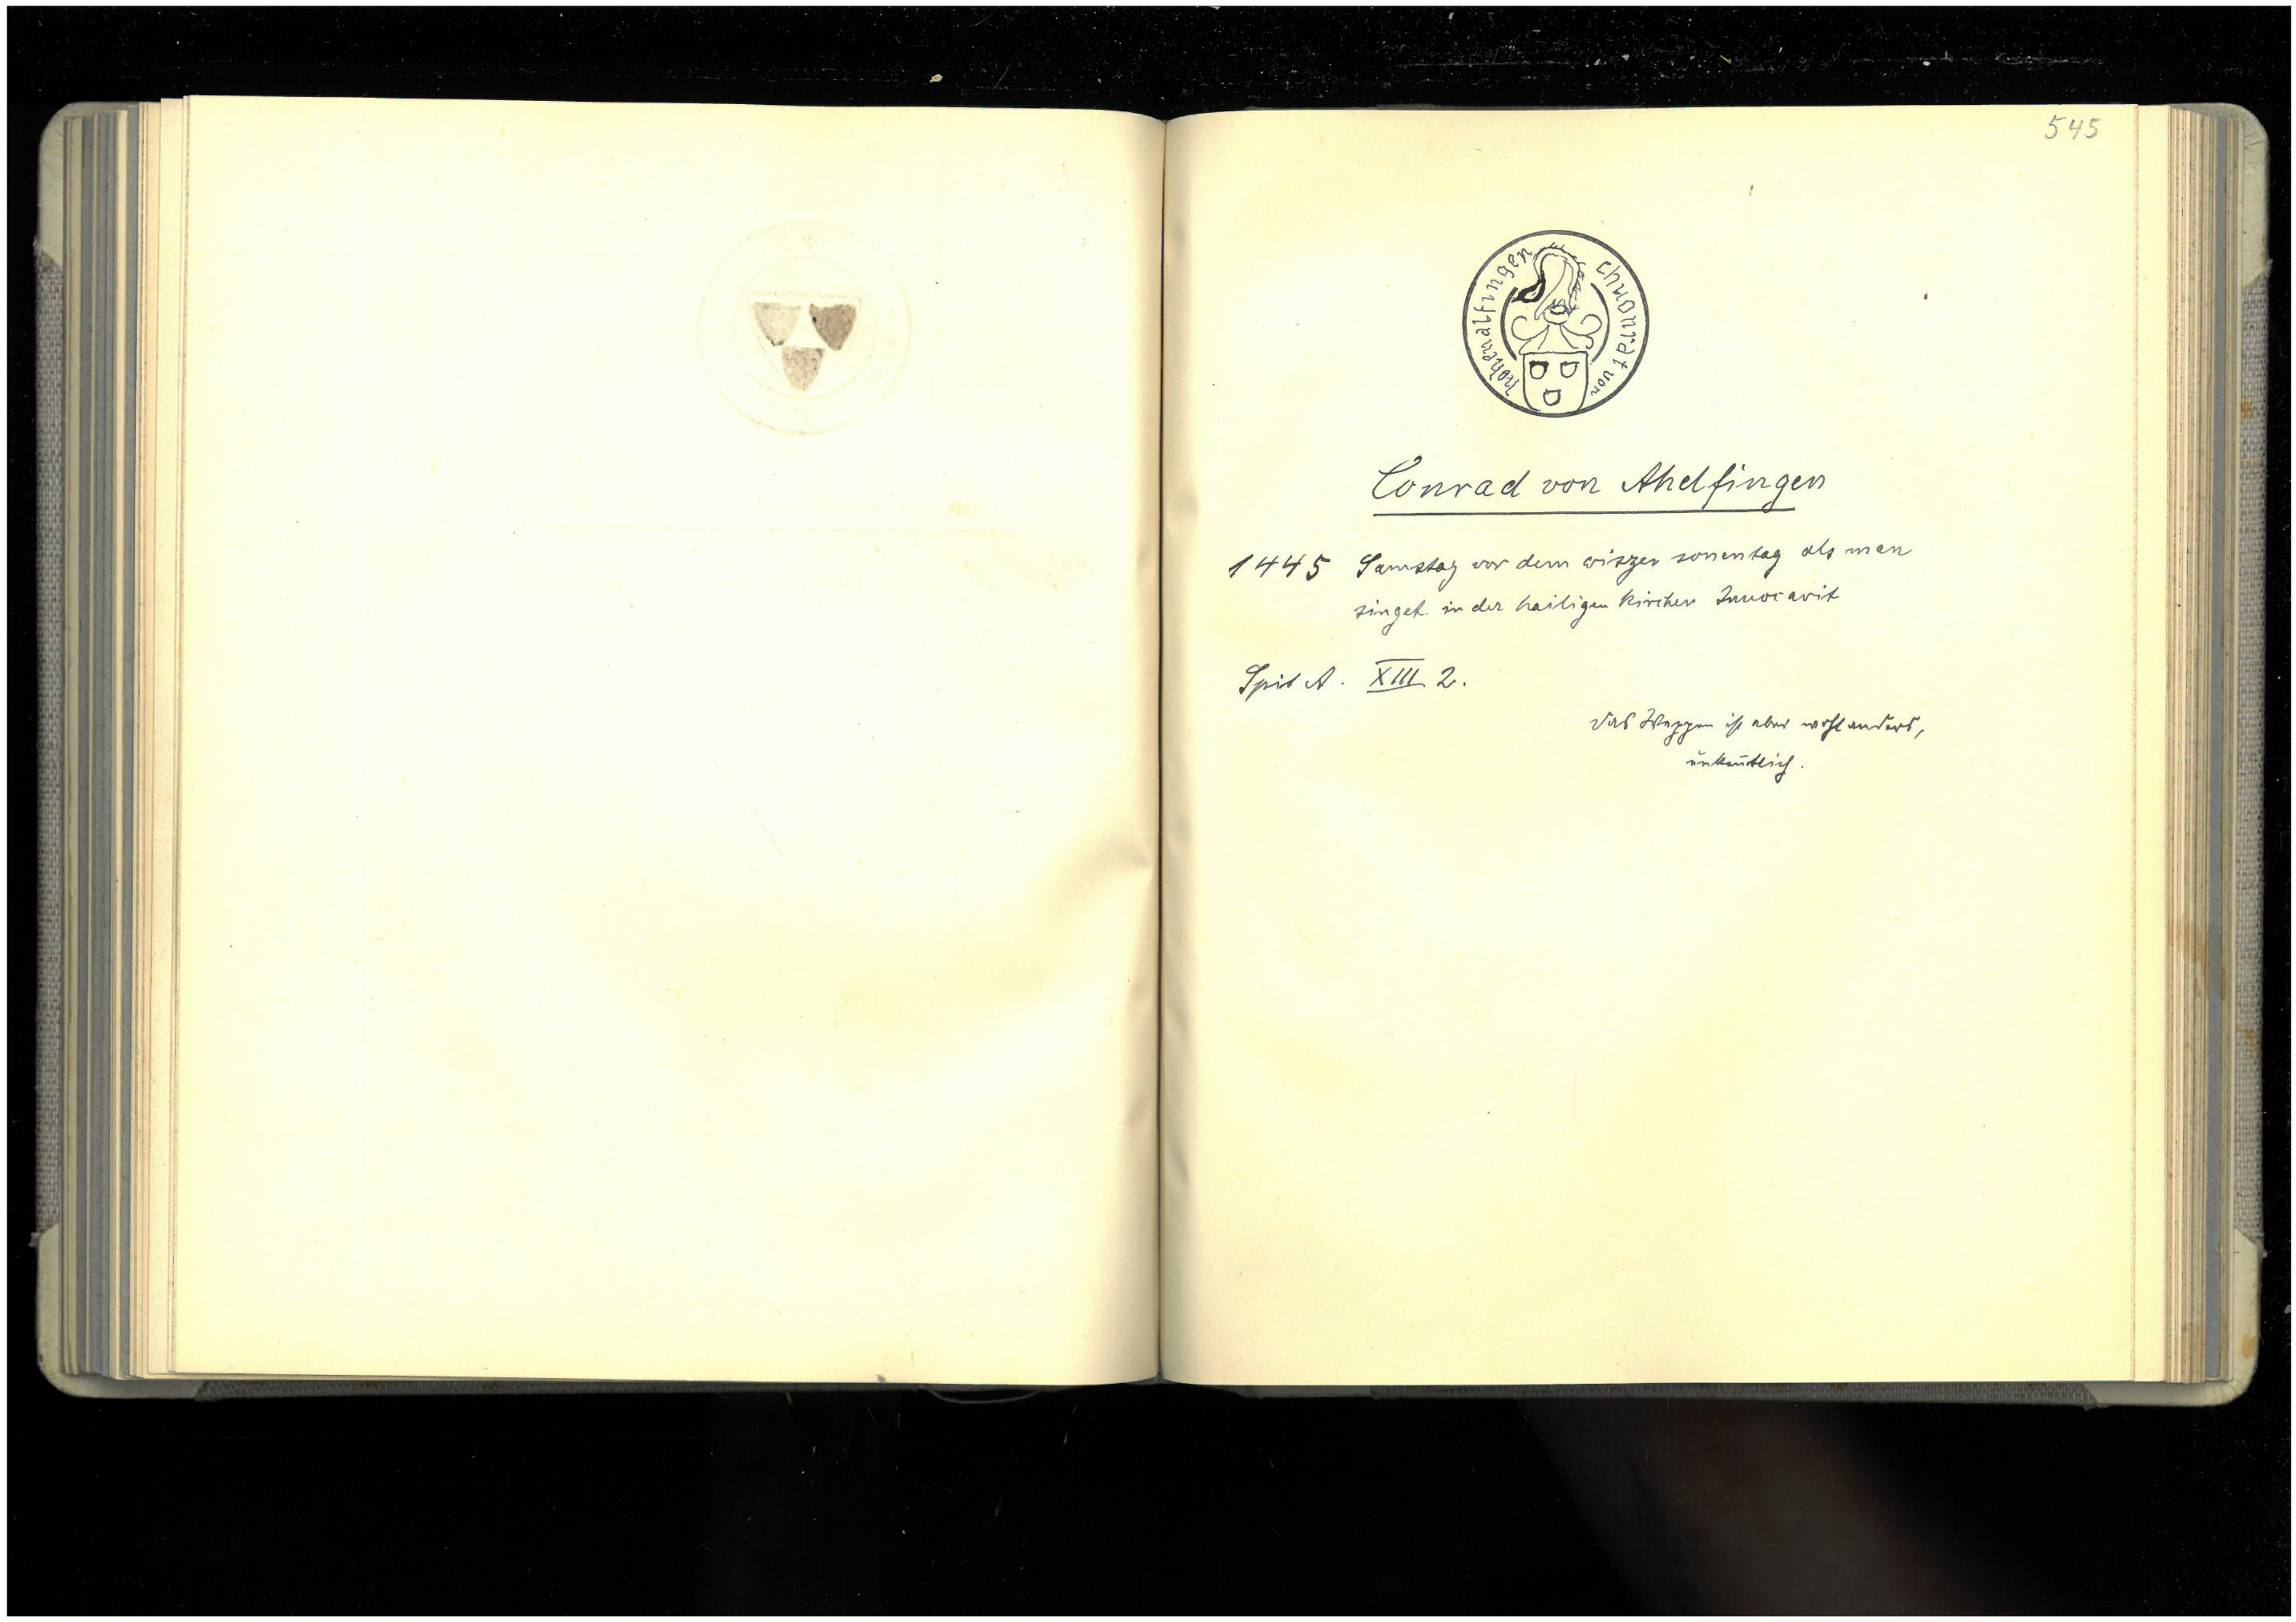 545
chuonrat von
hohenalfingen
Conrad von Ahelfingen
1445 Samstag vor dem wiszen sonentag als man
singet in der hailigen kirchen Invocavit
Spit A. XIII 2.
Das Wappen ist aber wohl anders,
unkentlich.